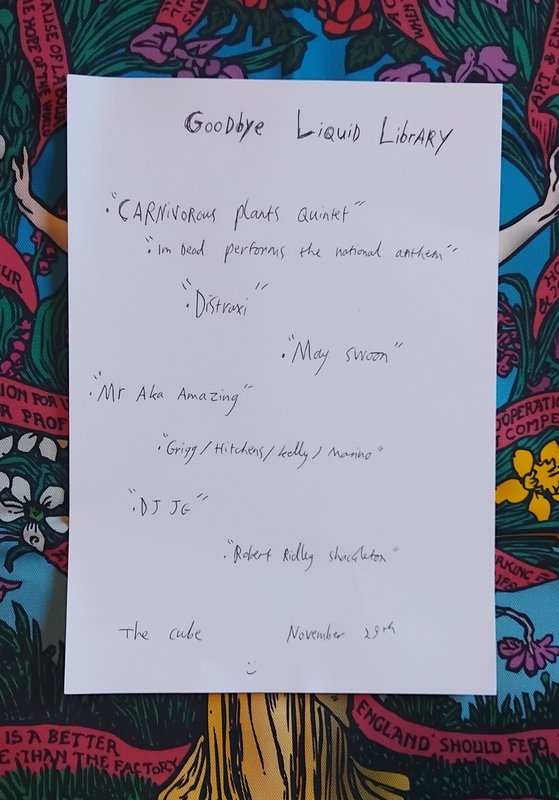 GOODbye LIQUID LIBRARY
· "CARNIVOROUS plants Quintet"
· "Im Dead performs the national anthem"
· "Distraxi"
· "May swoon"
· "Mr Aka Amazing"
· "Grigg / Hitchens / kelly / Marino"
· "DJ JG"
· "Robert Ridley shackleton"
The cube November 29th
THE HOPE OF THE WORLD
ART &
WHEN
IS A BETTER
THAN THE FACTORY
ENGLAND SHOULD FEED